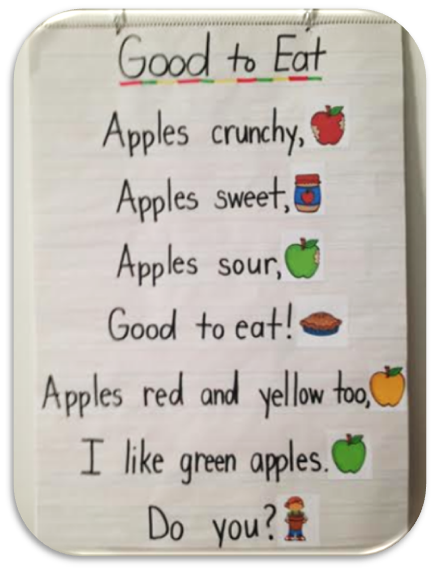 Good to Eat
Apples crunchy,
Apples sweet,
Apples sour,
Good to eat!
Apples red and yellow too,
I like green apples.
Do you?